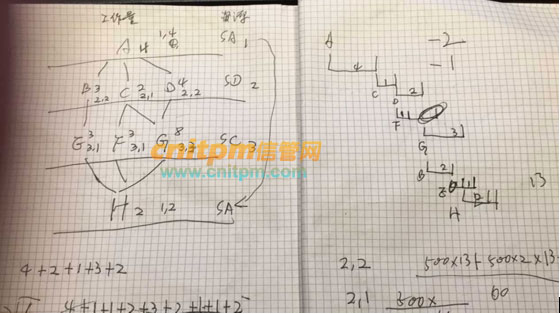 工作量 资源
A 4 1,4 SA 1
B 3 2,2 C 2 2,1 D 4 2,2 SD 2
E 3 2,1 F 3 3,1 G 8 3,3 SC 3
cnitpm信管网
www.cnitpm.com
H 2 1,2 SA
4+2+1+3+2
4+1+1+2+3+2+1+1+2
A -2
4 -1
C 1 2
D
F 1
G 3
B 2
E
H 2
13
2,2 500×13+500×2×13
60
2,1 500×